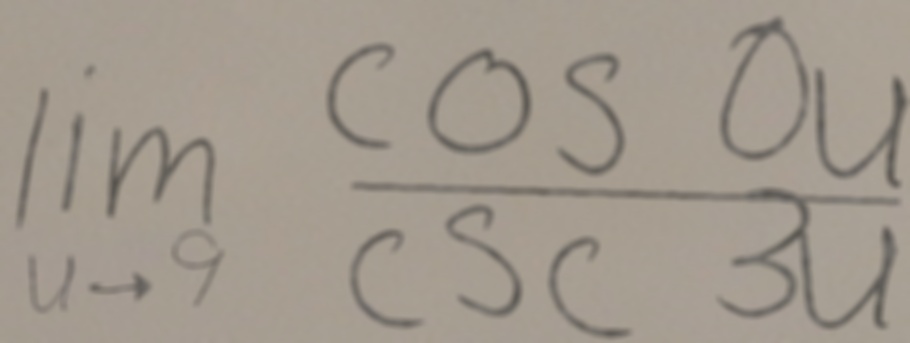 lim u→9 cos 0u / csc 3u